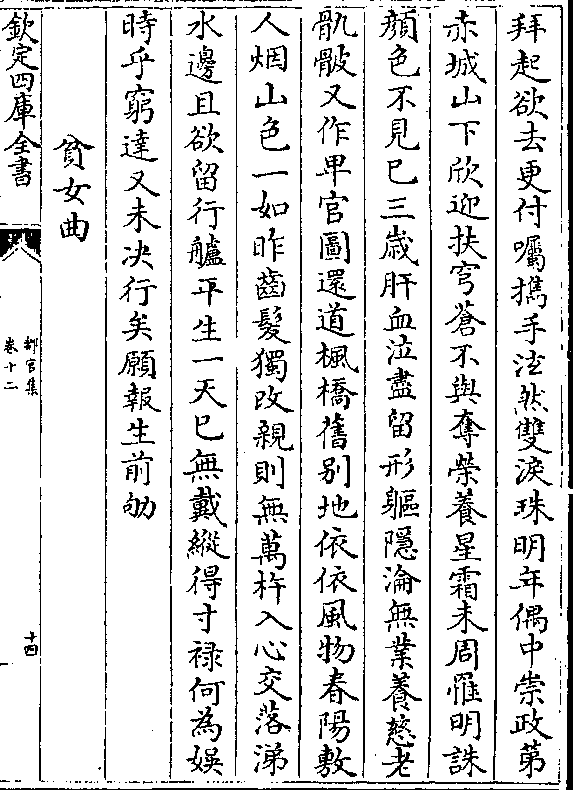 拜起欲去更付囑攜手泫然雙淚珠明年偶中崇政第
赤城山下欣迎扶穹蒼不與奪榮養星霜未周罹明誅
顔色不見已三歲肝血泣盡留形軀隱淪無業養慈老
骫骳又作卑官圖還道楓橋舊别地依依風物春陽敷
人烟山色一如昨齒髮獨改親則無萬杵入心交落涕
水邊且欲留行艫平生一天已無戴縱得寸禄何為娱
時乎窮達又未决行矣願報生前劬
貧女曲
欽定四庫全書
都官集
卷十二
十四